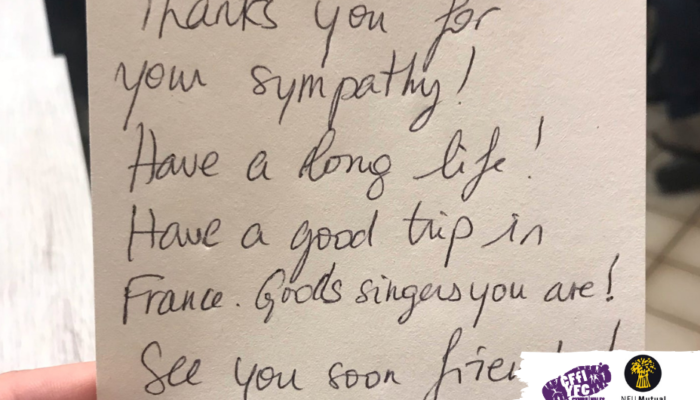 Thanks you for
your sympathy!
Have a long life!
Have a good trip in
France. Goods singers you are!
See you soon !
CFFI
YFC
NFU Mutual